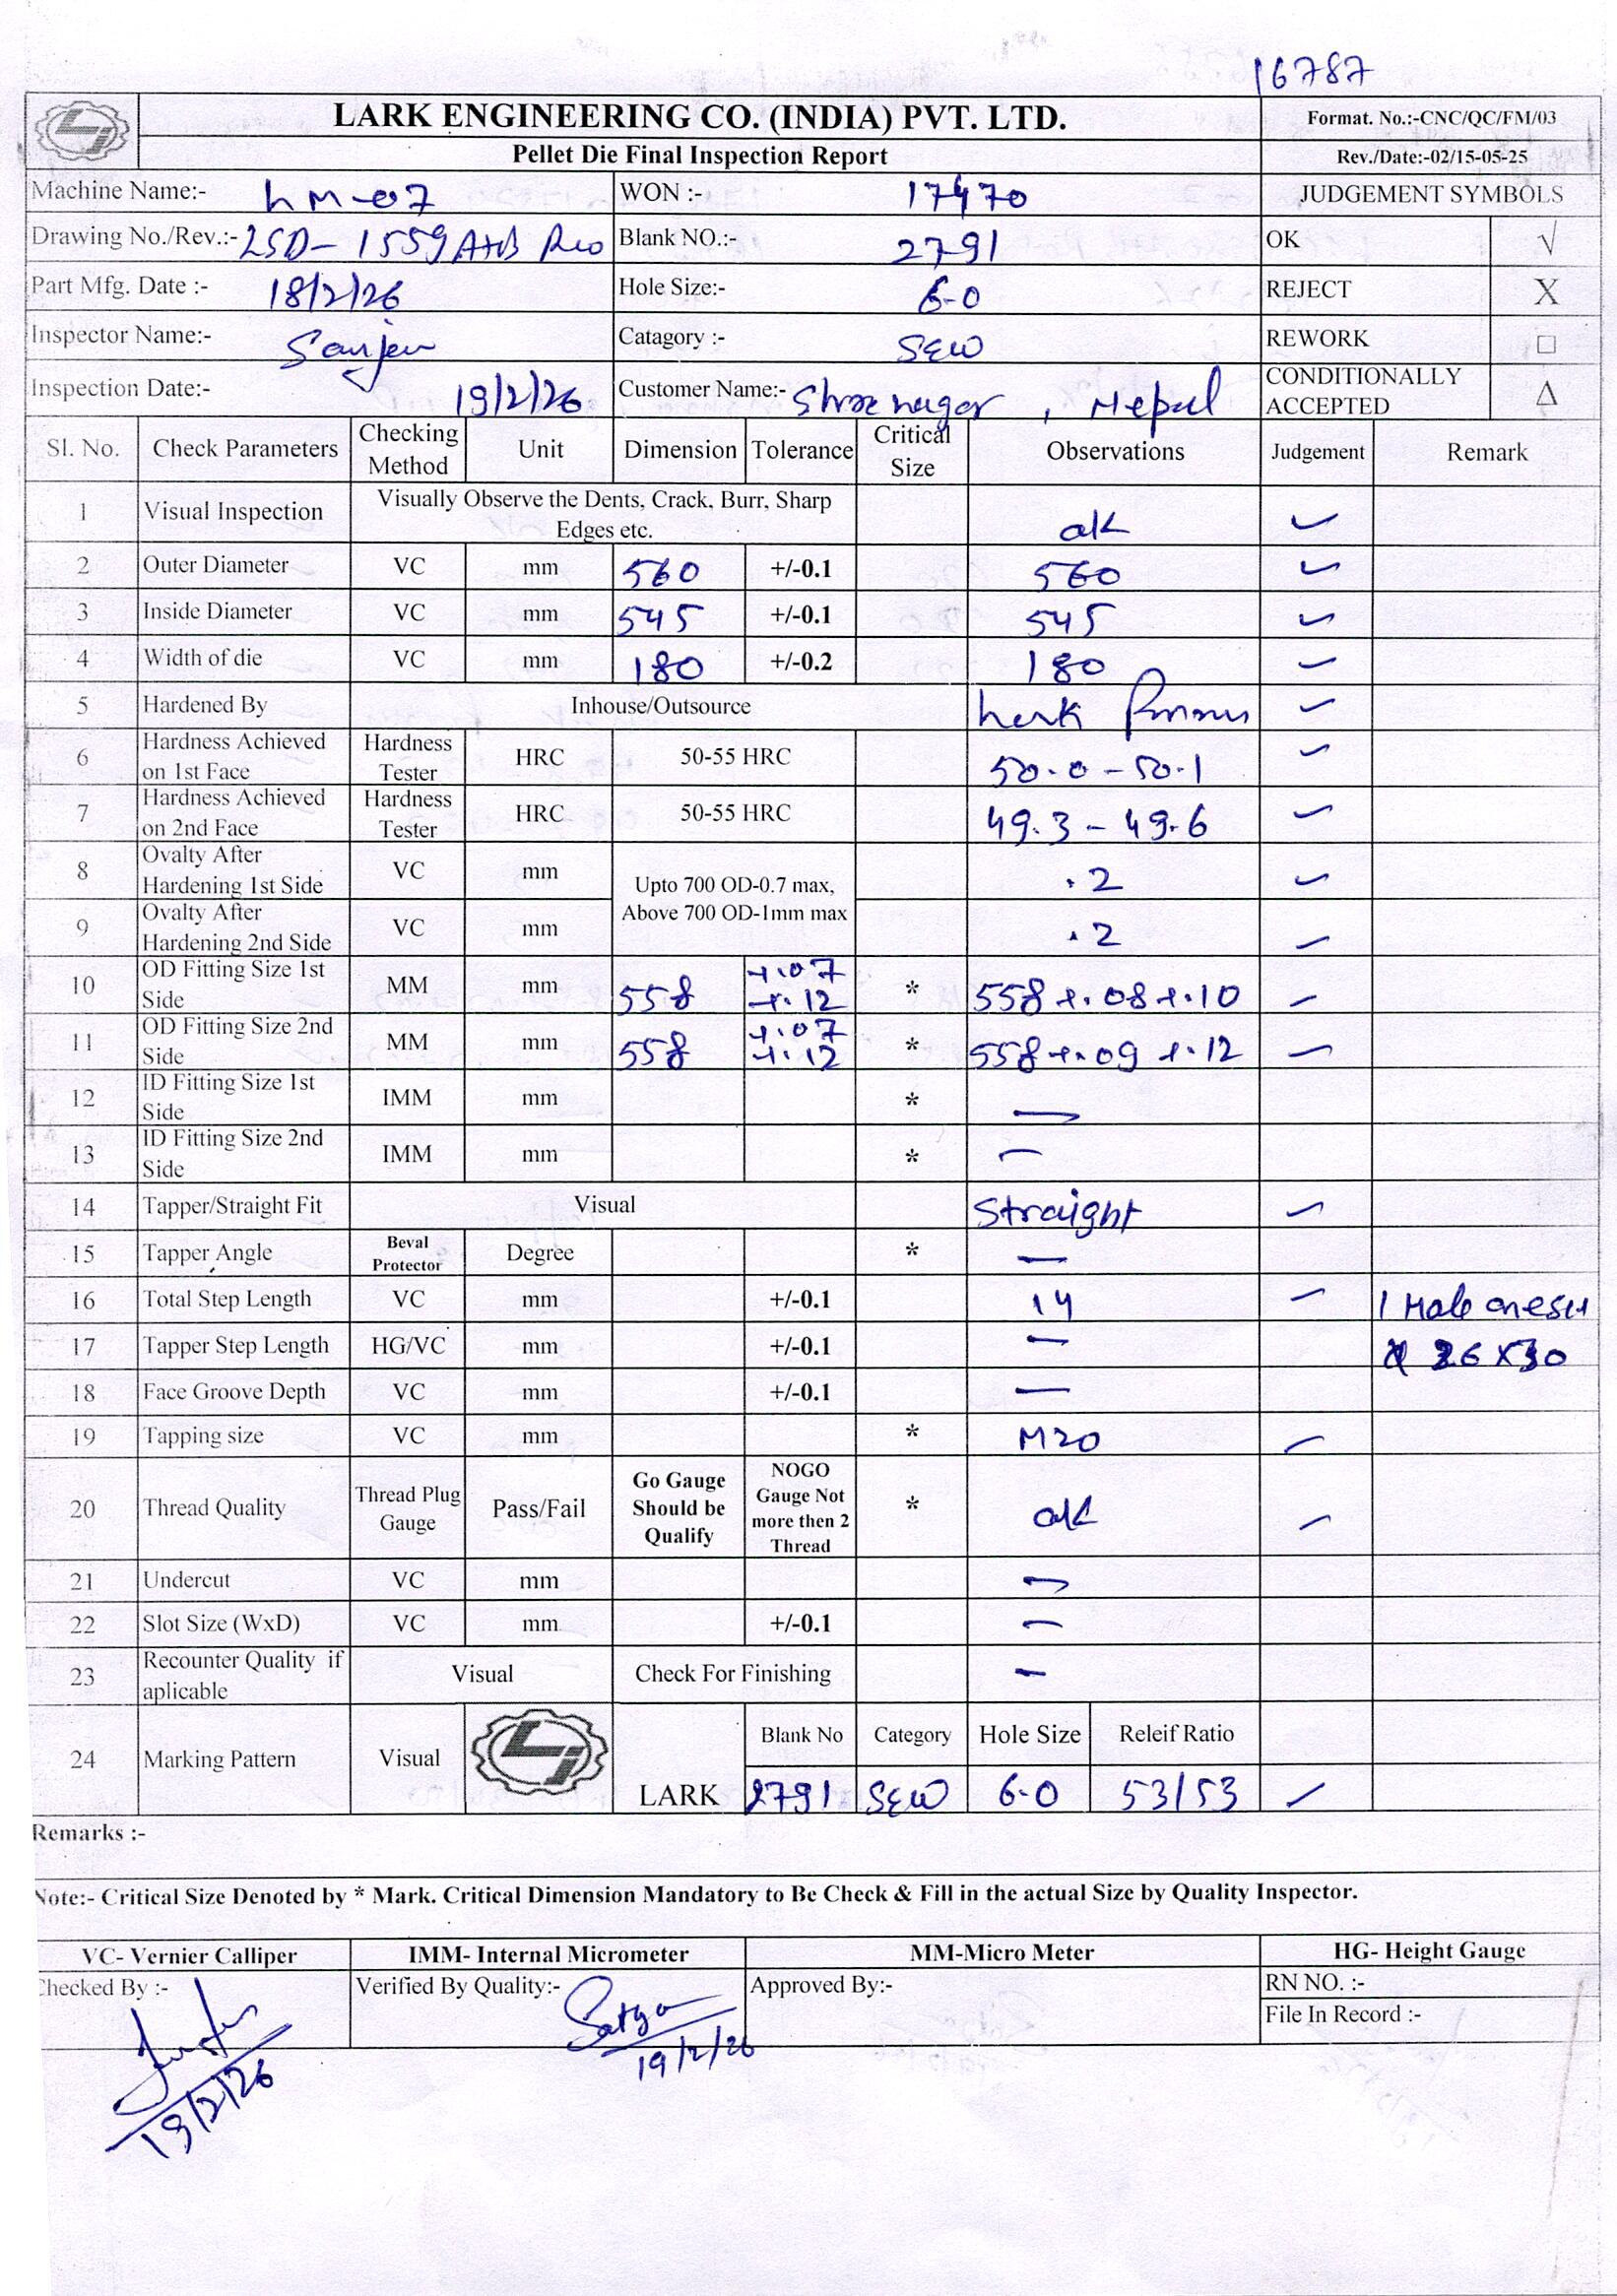 16787
LARK ENGINEERING CO. (INDIA) PVT. LTD. Format. No.:-CNC/QC/FM/03
Pellet Die Final Inspection Report Rev./Date:-02/15-05-25
Machine Name:- LM-07 WON :- 17470 JUDGEMENT SYMBOLS
Drawing No./Rev.:- LSD-1559 A+B Blank NO.:- 2791 OK √
Part Mfg. Date :- 18/2/26 Hole Size:- 6.0 REJECT X
Inspector Name:- Catagory :- SEW REWORK □
Inspection Date:- 19/2/26 Customer Name:- Shree nagar, Nepal CONDITIONALLY ACCEPTED Δ
Sl. No. Check Parameters Checking Method Unit Dimension Tolerance Critical Size Observations Judgement Remark
1 Visual Inspection Visually Observe the Dents, Crack, Burr, Sharp Edges etc. ok ✓
2 Outer Diameter VC mm 560 +/-0.1 560 ✓
3 Inside Diameter VC mm 545 +/-0.1 545 ✓
4 Width of die VC mm 180 +/-0.2 180 ✓
5 Hardened By Inhouse/Outsource ✓
6 Hardness Achieved on 1st Face Hardness Tester HRC 50-55 HRC 50.0 - 50.1 ✓
7 Hardness Achieved on 2nd Face Hardness Tester HRC 50-55 HRC 49.3 - 49.6 ✓
8 Ovalty After Hardening 1st Side VC mm Upto 700 OD-0.7 max, Above 700 OD-1mm max .2 ✓
9 Ovalty After Hardening 2nd Side VC mm .2 ✓
10 OD Fitting Size 1st Side MM mm 558 +.07 +.12 * 558 +.08 +.10 ✓
11 OD Fitting Size 2nd Side MM mm 558 +.07 +.12 * 558 +.09 +.12 ✓
12 ID Fitting Size 1st Side IMM mm * —
13 ID Fitting Size 2nd Side IMM mm * —
14 Tapper/Straight Fit Visual Straight ✓
15 Tapper Angle Beval Protector Degree * —
16 Total Step Length VC mm +/-0.1 14 ✓ 1
17 Tapper Step Length HG/VC mm +/-0.1 —
18 Face Groove Depth VC mm +/-0.1 —
19 Tapping size VC mm * M20 ✓
20 Thread Quality Thread Plug Gauge Pass/Fail Go Gauge Should be Qualify NOGO Gauge Not more then 2 Thread * ok ✓
21 Undercut VC mm —
22 Slot Size (WxD) VC mm +/-0.1 —
23 Recounter Quality if aplicable Visual Check For Finishing —
24 Marking Pattern Visual LARK Blank No Category Hole Size Releif Ratio
2791 SEW 6.0 53/53 ✓
Remarks :-
Note:- Critical Size Denoted by * Mark. Critical Dimension Mandatory to Be Check & Fill in the actual Size by Quality Inspector.
VC- Vernier Calliper IMM- Internal Micrometer MM-Micro Meter HG- Height Gauge
Checked By :- Verified By Quality:- Satya Approved By:- RN NO. :-
File In Record :-
19/2/26 19/2/26